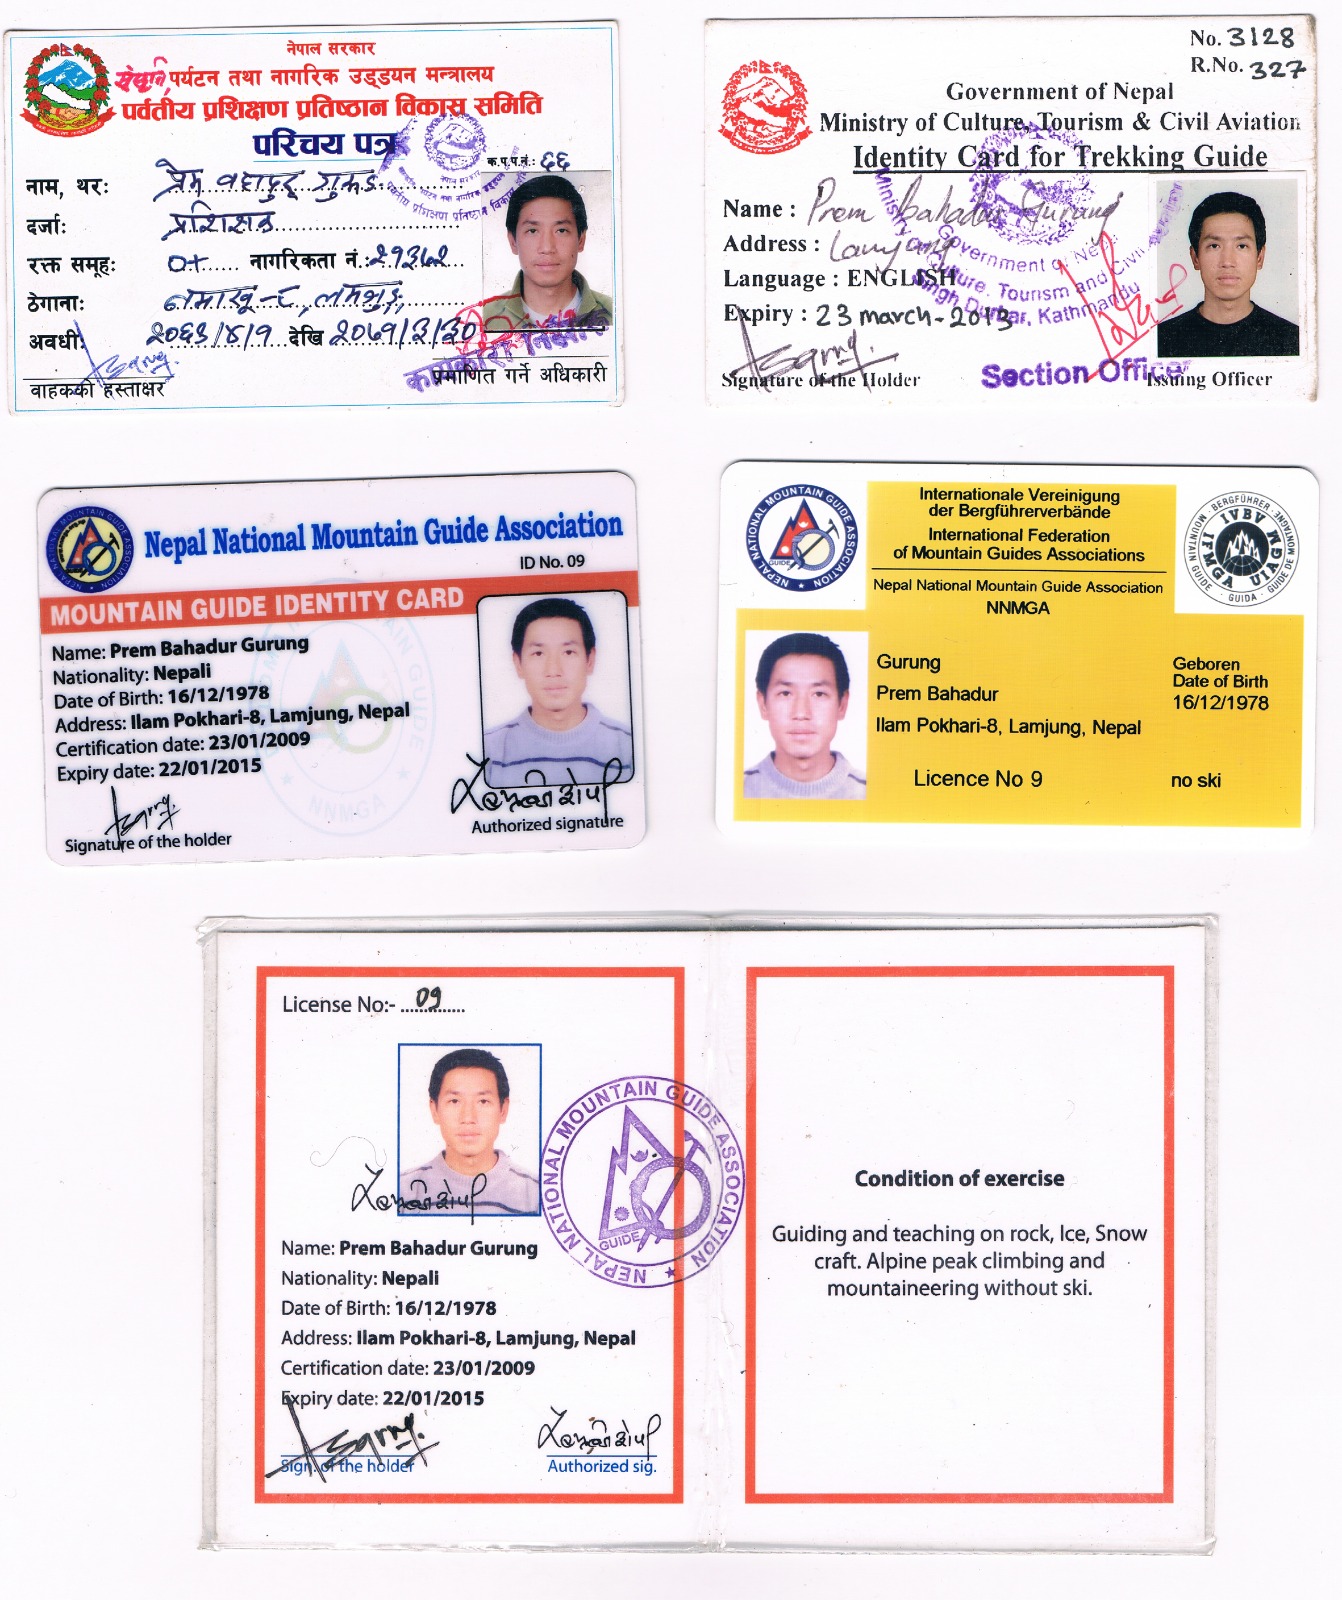 नेपाल सरकार
संस्कृति, पर्यटन तथा नागरिक उड्डयन मन्त्रालय
पर्वतीय प्रशिक्षण प्रतिष्ठान विकास समिति
परिचय पत्र
क.प.प.नं.: ६६
नाम, थर: प्रेम बहादुर गुरुङ
दर्जा: प्रशिक्षक
रक्त समूह: O+ नागरिकता नं.: २१३८२
ठेगाना:
अवधी: २०६३/४/१ देखि २०७१/३/३०
वाहकको हस्ताक्षर
प्रमाणित गर्ने अधिकारी
No. 3128
R.No. 327
Government of Nepal
Ministry of Culture, Tourism & Civil Aviation
Identity Card for Trekking Guide
Name : Prem Bahadur Gurung
Address : Lamjung
Language : ENGLISH
Expiry : 23 march-2013
Signature of the Holder
Section Officer
Issuing Officer
Ministry of Culture, Tourism and Civil
Government of Nepal
Singh Durbar, Kathmandu
NEPAL NATIONAL MOUNTAIN GUIDE ASSOCIATION
Nepal National Mountain Guide Association
ID No. 09
MOUNTAIN GUIDE IDENTITY CARD
Name: Prem Bahadur Gurung
Nationality: Nepali
Date of Birth: 16/12/1978
Address: Ilam Pokhari-8, Lamjung, Nepal
Certification date: 23/01/2009
Expiry date: 22/01/2015
NNMGA
Signature of the holder
Authorized signature
NEPAL NATIONAL MOUNTAIN GUIDE ASSOCIATION
GUIDE
Internationale Vereinigung
der Bergführerverbände
International Federation
of Mountain Guides Associations
Nepal National Mountain Guide Association
NNMGA
BERGFÜHRER · GUIDE DE MONTAGNE · GUIDA · MOUNTAIN GUIDE
IVBV
UIAGM
IFMGA
Gurung
Prem Bahadur
Ilam Pokhari-8, Lamjung, Nepal
Geboren
Date of Birth
16/12/1978
Licence No 9
no ski
License No:- 09
NEPAL NATIONAL MOUNTAIN GUIDE ASSOCIATION
GUIDE
Name: Prem Bahadur Gurung
Nationality: Nepali
Date of Birth: 16/12/1978
Address: Ilam Pokhari-8, Lamjung, Nepal
Certification date: 23/01/2009
Expiry date: 22/01/2015
Sign. of the holder
Authorized sig.
Condition of exercise
Guiding and teaching on rock, Ice, Snow
craft. Alpine peak climbing and
mountaineering without ski.